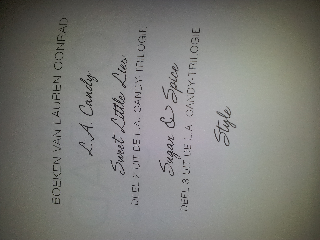 BOEKEN VAN LAUREN CONRAD
L.A. Candy
Sweet Little Lies
DEEL 2 UIT DE L.A. CANDY-TRILOGIE
Sugar & Spice
DEEL 3 UIT DE L.A. CANDY-TRILOGIE
Style